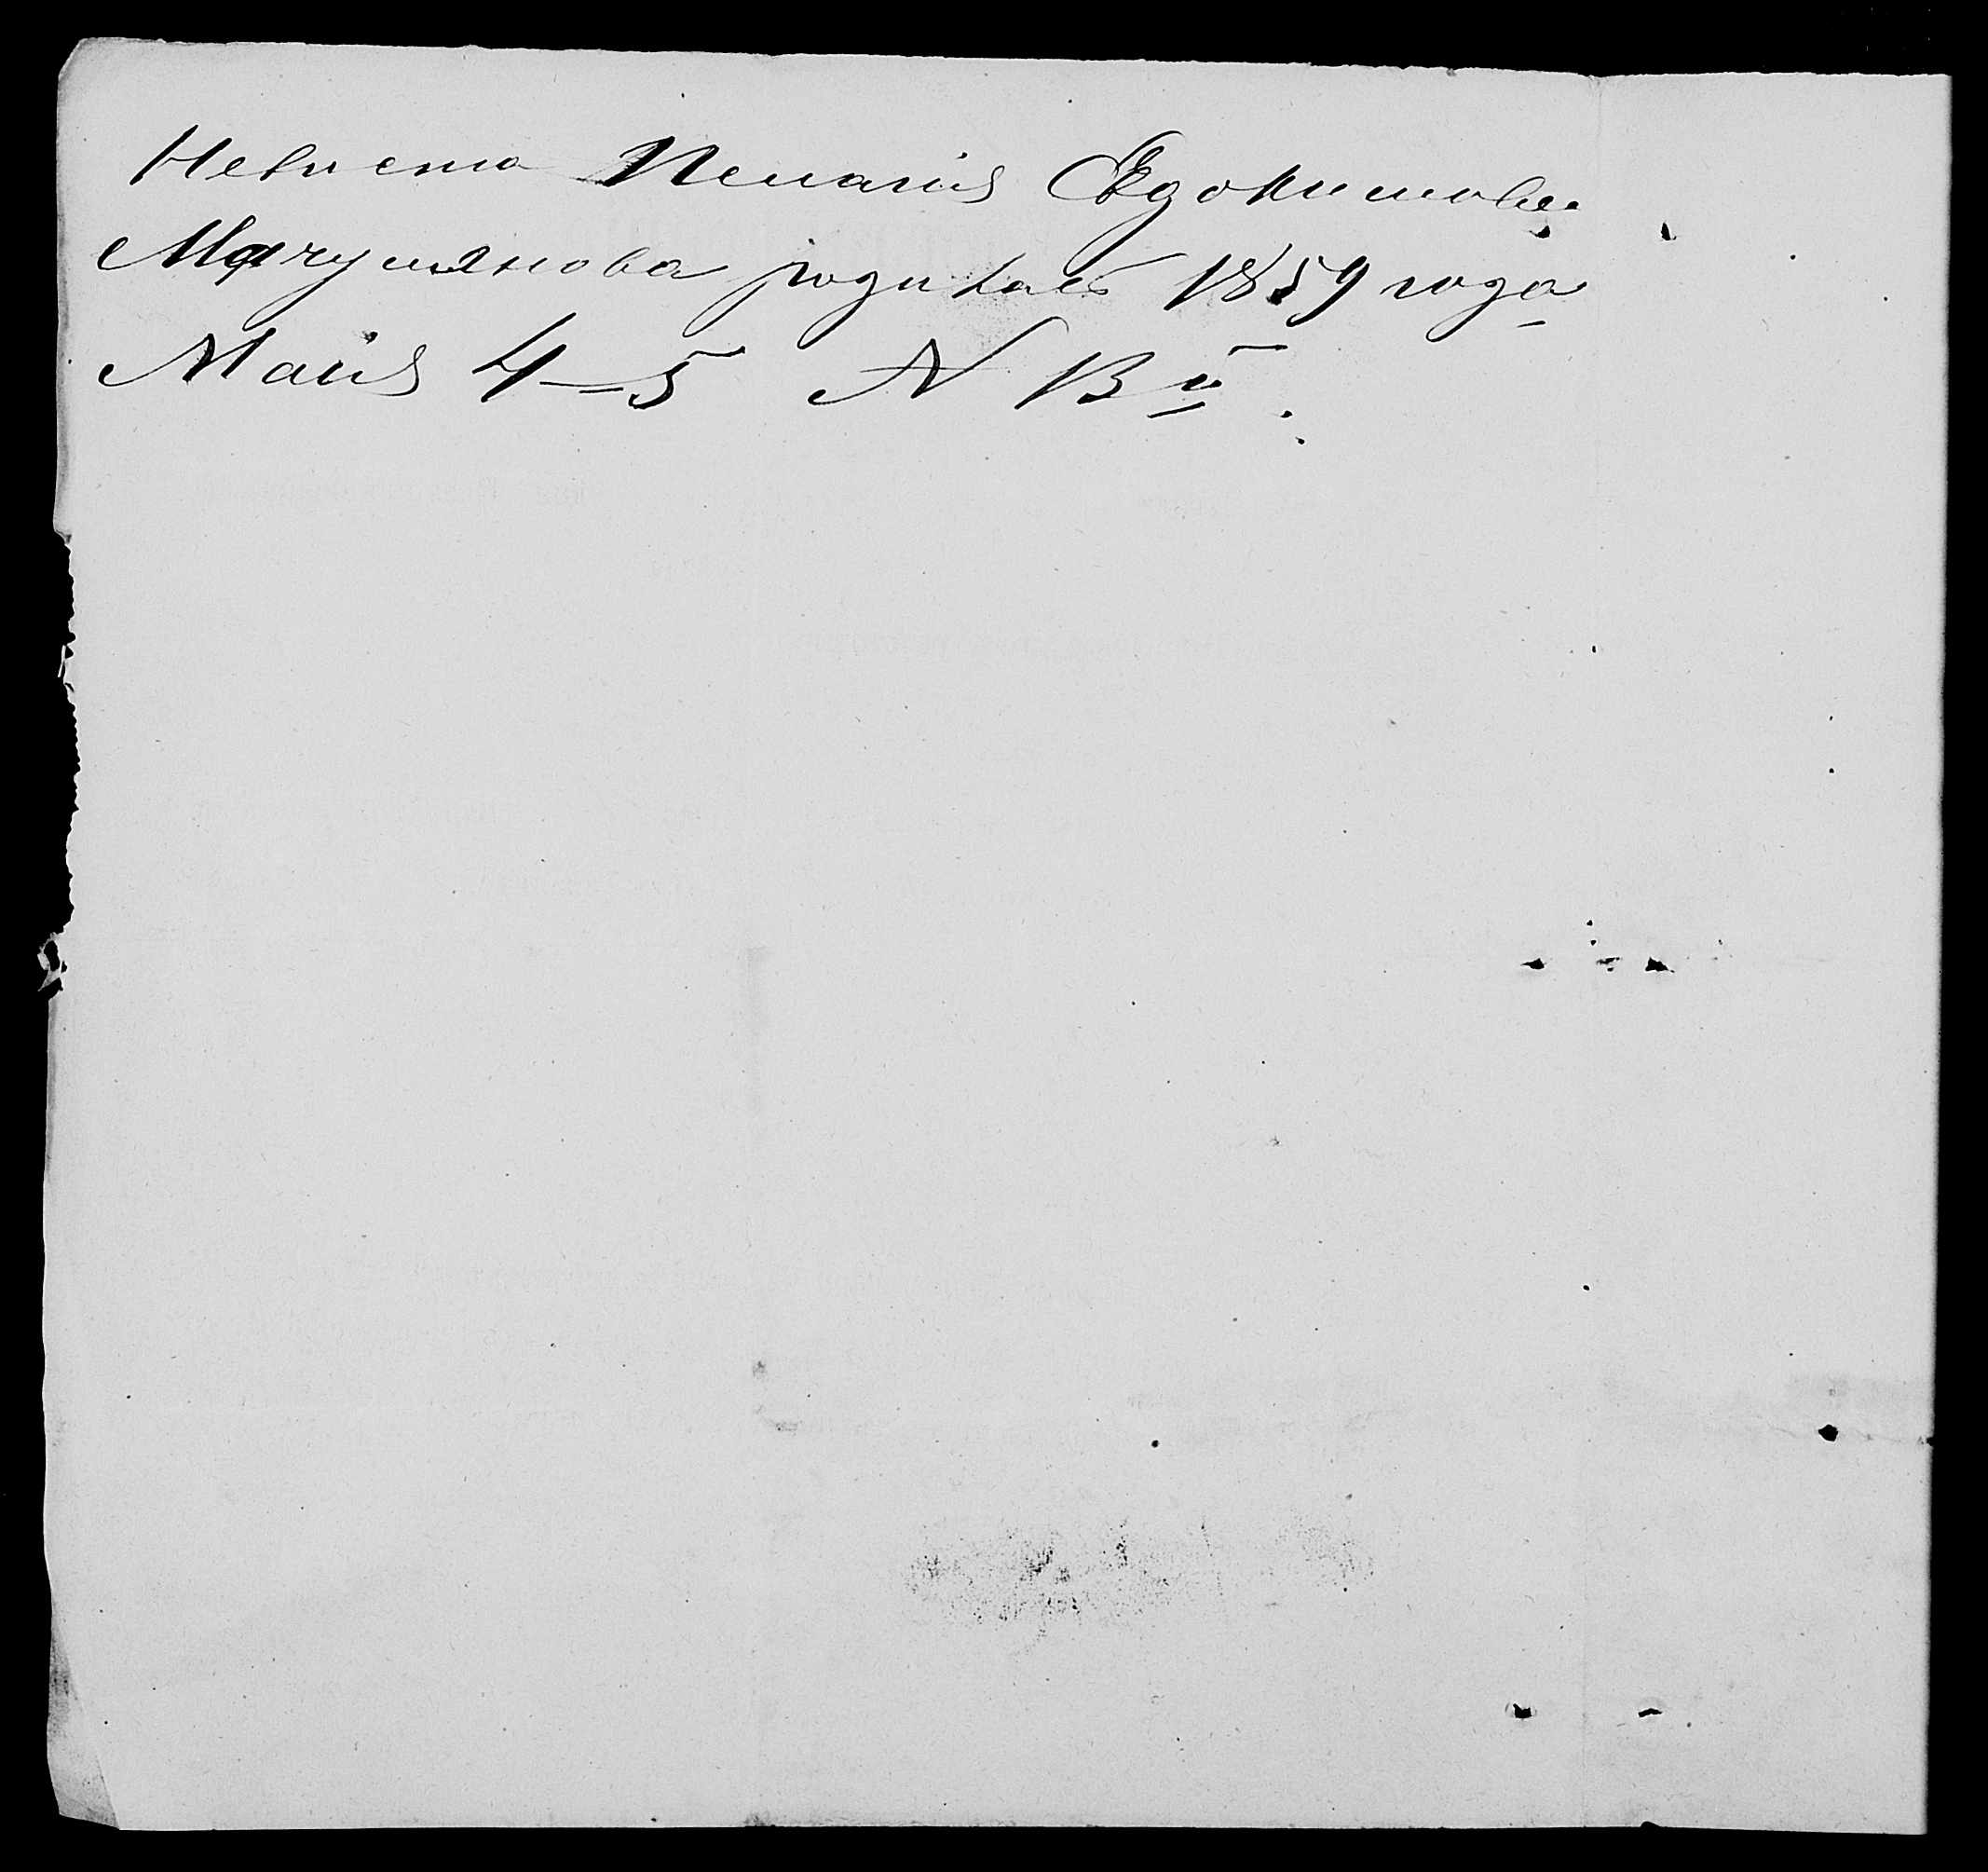 Невѣста Пелагія Евдокимова
Мачульянова родилась 1859 года
Маія 4–5 N 13й.